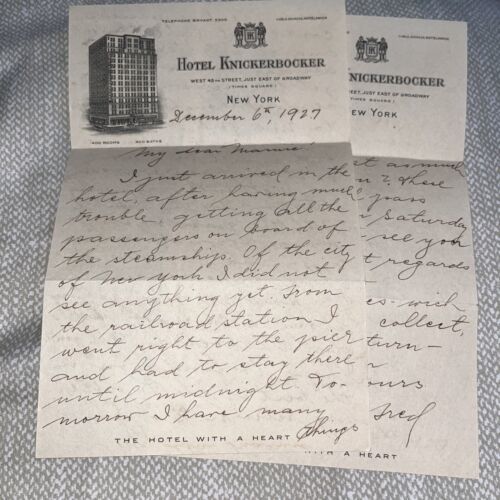 TELEPHONE BRYANT
HOTEL KNICKERBOCKER
WEST 45TH STREET, JUST EAST OF BROADWAY
(TIMES SQUARE)
NEW YORK
400 ROOMS 400 BATHS
December 6th, 1927
My dear
I just arrived in the
hotel, after having much
trouble getting all the
passengers on board of
the steamships. Of the city
of New York I did not
see anything yet. From
the railroad station I
went right to the pier
and had to stay there
until midnight. To-
morrow I have many
things
THE HOTEL WITH A HEART
NICKERBOCKER
STREET, JUST EAST OF BROADWAY
(TIMES SQUARE)
EW YORK
as much
these
pass
Saturday
see you
regards
wish
collect,
turn-
ours
Fred
H A HEART